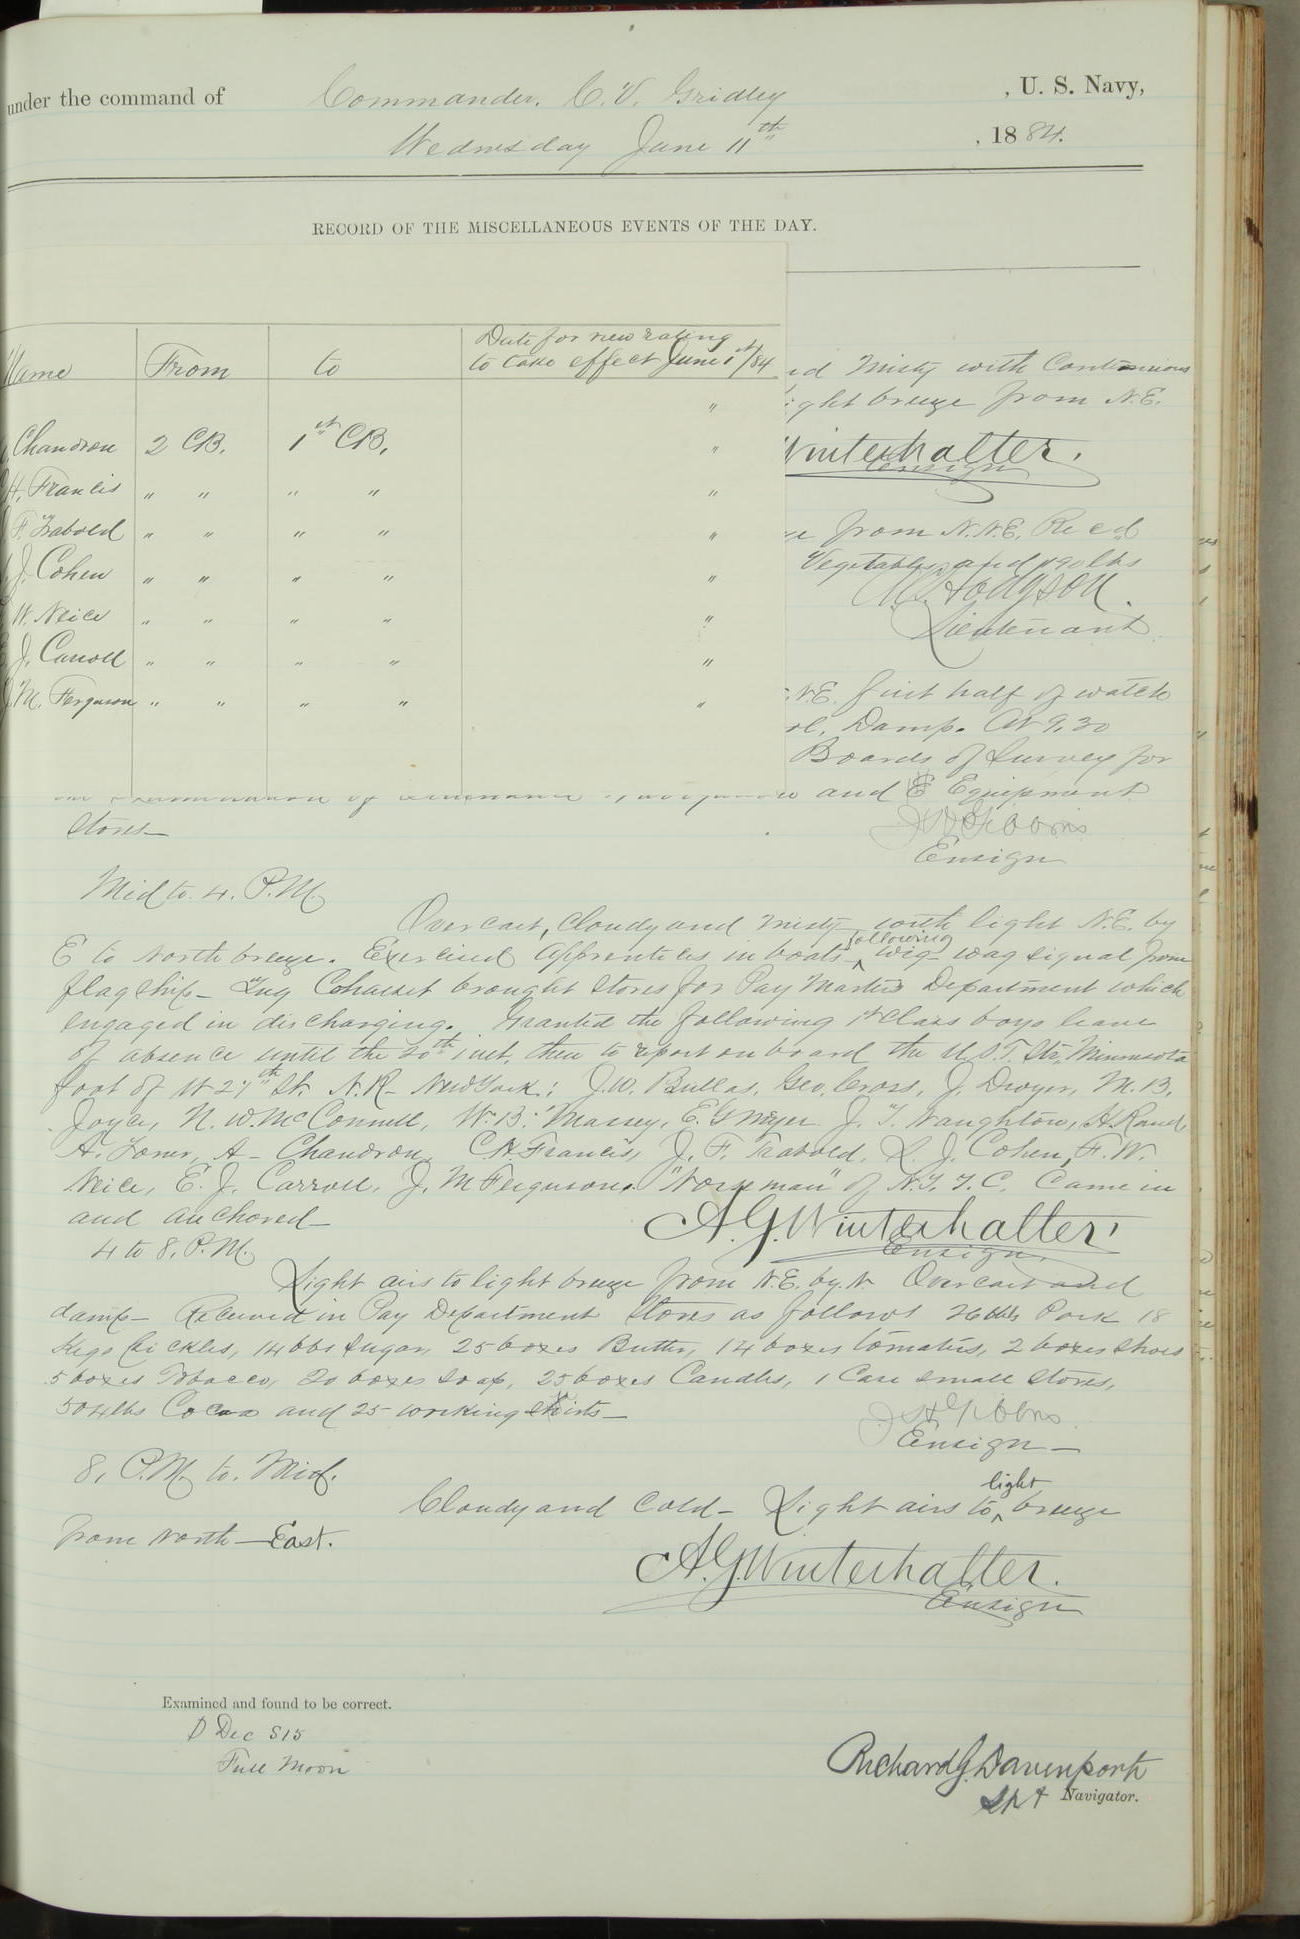 under the command of Commander. C. V. Gridley , U. S. Navy,
Wednesday June 11th , 1884.
RECORD OF THE MISCELLANEOUS EVENTS OF THE DAY.
Name From to Date for new rating to take effect June 1st/84
"
Chandron 2 CB. 1st CB. "
H. Francis " " " " "
F. Trabold " " " " "
J. Cohen " " " " "
W. Neice " " " " "
J. Carroll " " " " "
J. M. Ferguson " " " " "
Misty with Continuous
breeze from N.E.
Winterhalter.
Ensign
from N.N.E. Recd
Vegetables and 190 lbs
Hodgson.
Lieutenant.
N.E. first half of watch
Damp. At 9.30
Boards of Survey for
and Equipment
Stores—
J H Gibbons
Ensign
Mid to 4. P.M.
Overcast, Cloudy and misty with light N.E. by
E to North breeze. Exercised Apprentices in boats following wig wag signal from
flagship— Tug Cohasset brought stores for Pay Masters Department which
engaged in discharging. Granted the following 1st Class boys leave
of absence until the 20th inst, then to report on board the U.S.T. Str. Minnesota
foot of W 27th St. N.R. New York: J.W. Bullas, Geo. Cross, J. Dwyer, M.B.
Joyce, N. W. McConnell, W.B. Massey, E. G Meyer J. T. Naughton, H. Rand
A. Toner, A— Chandron, C.H. Francis, J. F. Trabold, L. J. Cohen, F. W.
Neice, E. J. Carroll, J. M Ferguson. "Norseman" of N.Y.Y.C. Came in
and anchored—
A.G. Winterhalter
Ensign.
4 to 8, P.M.
Light airs to light breeze from N.E. by N. Overcast and
damp— Received in Pay Department Stores as follows 26 bbls Pork 18
Kegs Pickles, 14 bbs Sugar, 25 boxes Butter, 14 boxes tomatoes, 2 boxes Shoes
5 boxes Tobacco, 20 boxes Soap, 25 boxes Candles, 1 Case small Stores,
504 lbs Cocoa and 25 working shirts—
J H Gibbons
Ensign—
8, P.M. to. Mid.
Cloudy and Cold— Light airs to light breeze
from North—East.
A.G. Winterhalter.
Ensign
Examined and found to be correct.
D Dec S15
Full Moon
Richard G. Davenport
Navigator.